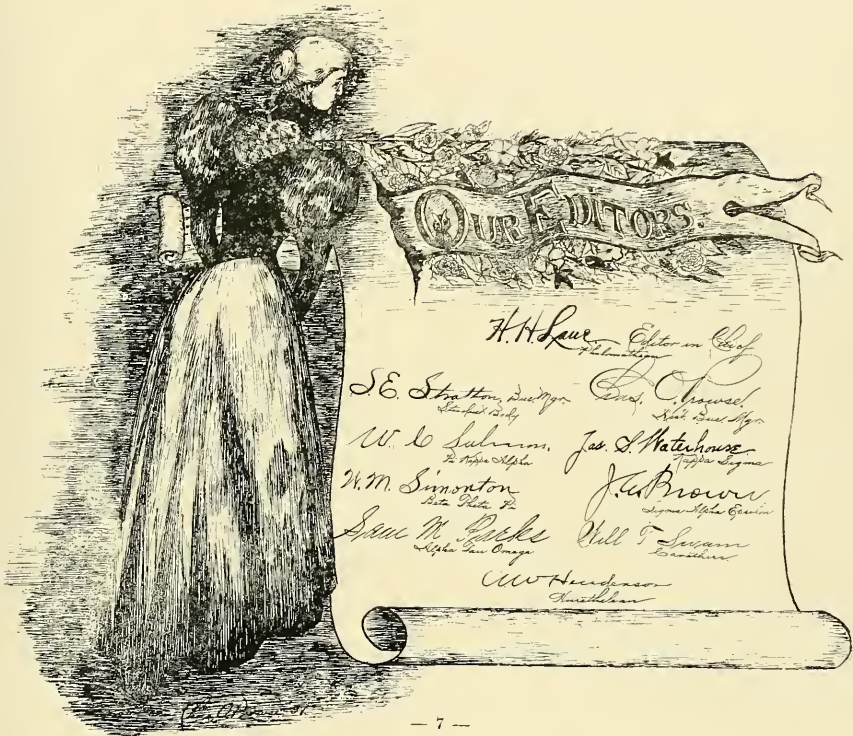 OUR EDITORS
H. H. Lane Editor in Chief
Philomathean
S. E. Stratton, Bus. Mgr.
Student Body
Chas. O. Prowse.
Asst. Bus. Mgr.
W. C.
Pi Kappa Alpha
Jas. S. Waterhouse
Kappa Sigma
W. M. Simonton
Beta Theta Pi
J. A. Brown
Sigma Alpha Epsilon
Sam M. Parks
Alpha Tau Omega
Will T Swaim
Carothers
Henderson
— 7 —